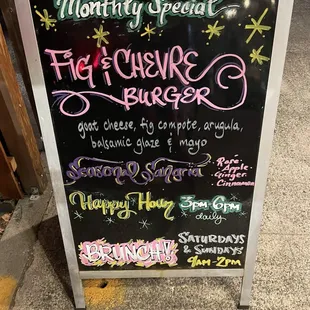 Monthly Special
FIG & CHEVRE
BURGER
goat cheese, fig compote, arugula,
balsamic glaze & mayo
Seasonal Sangria
• Rose•
• Apple•
• Ginger•
• Cinnamon
Happy Hour 3PM-6PM
daily
BRUNCH!
SATURDAYS
& SUNDAYS
9AM-2PM